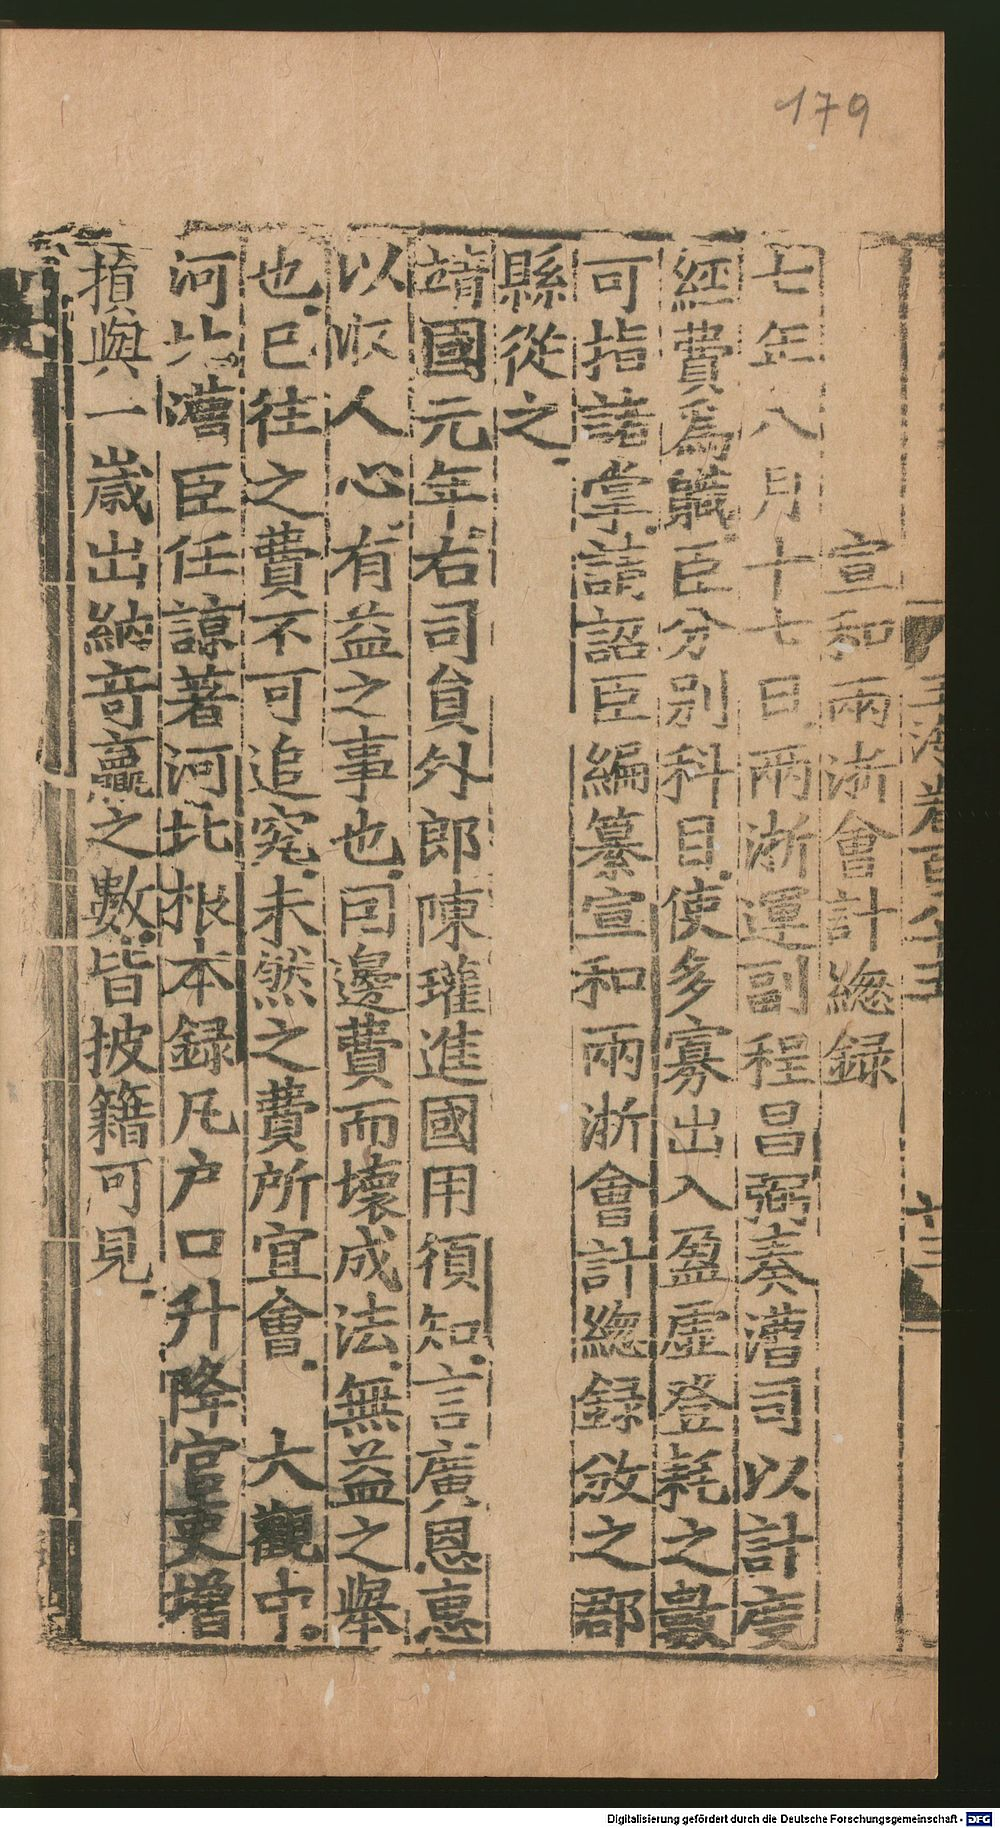 179
玉海卷百八十五
六三
宣和兩浙會計總録
七年八月十七日兩浙運副程昌弼奏漕司以計度
經費爲職臣分別科目使多寡出入盈虛登耗之數
可指諸掌請詔臣編纂宣和兩浙會計總録斂之郡
縣從之
靖國元年右司員外郎陳瓘進國用須知言廣恩惠
以收人心有益之事也因邊費而壞成法無益之舉
也已往之費不可追究未然之費所宜會 大觀中
河北漕臣任諒著河北根本録凡户口升降官吏增
損與一歲出納竒羸之數皆披籍可見
Digitalisierung gefördert durch die Deutsche Forschungsgemeinschaft - DFG